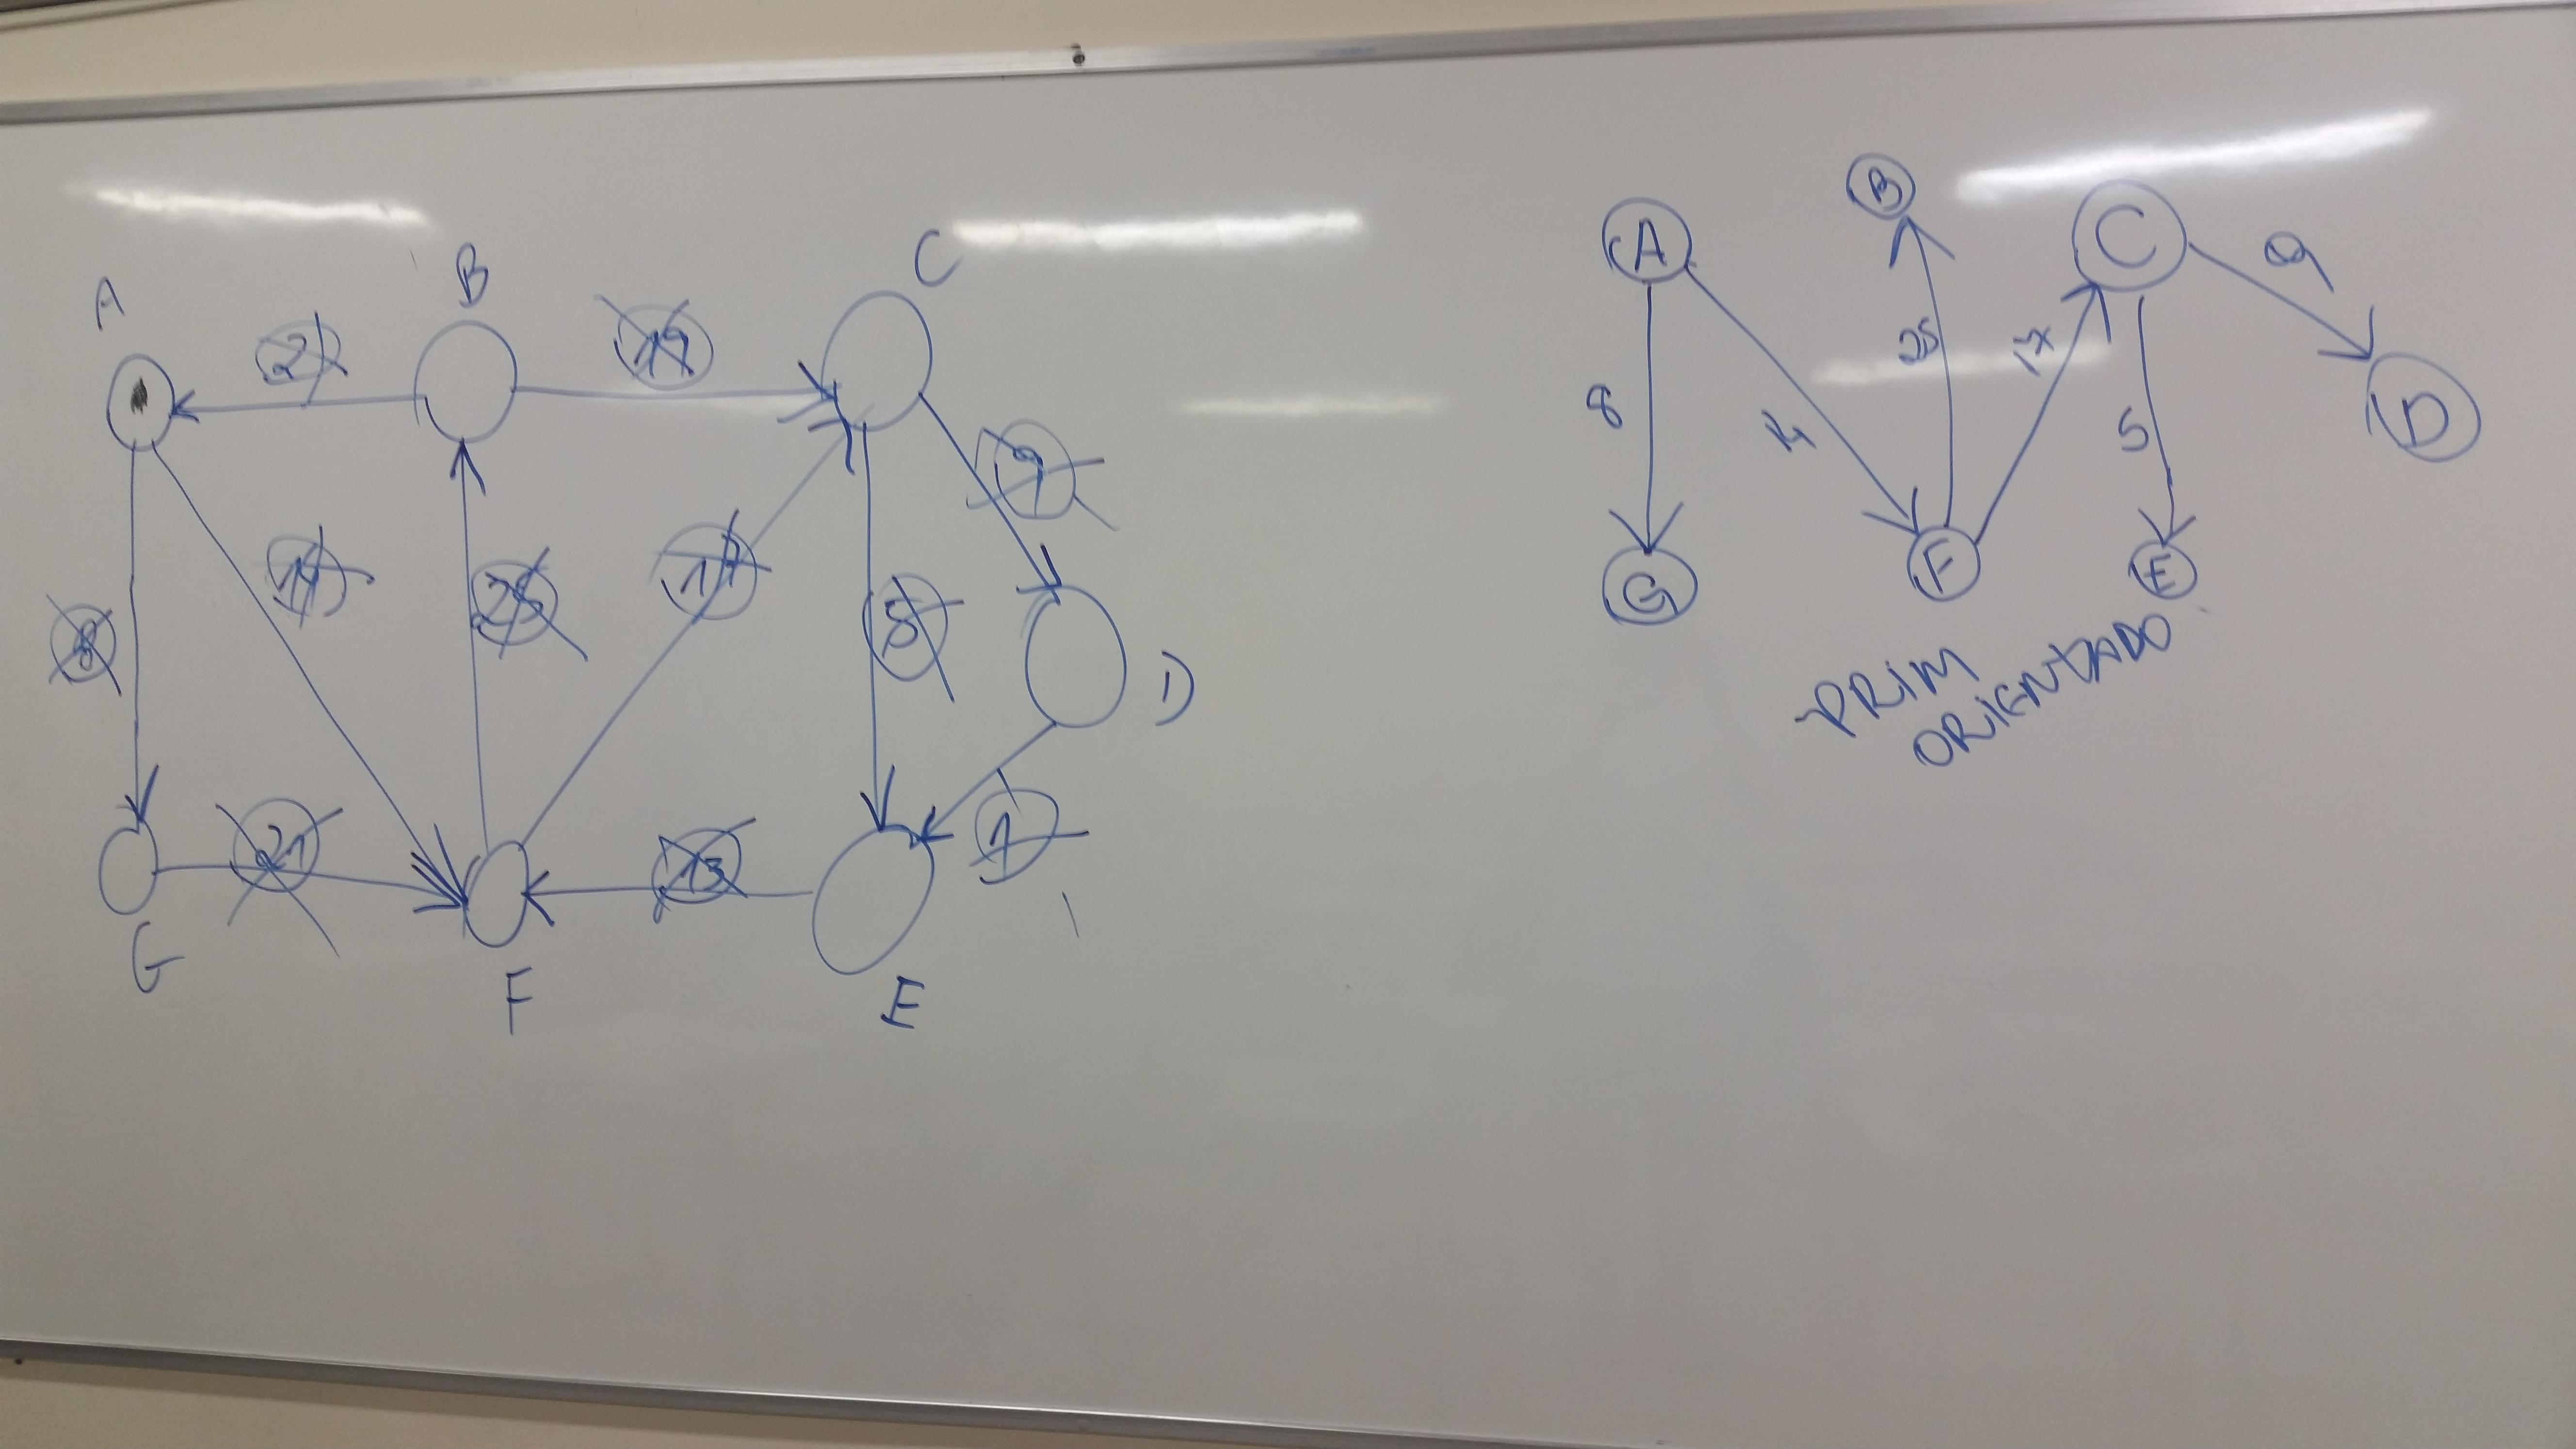 A
B
C
2
19
9
14
25
17
8
5
D
21
13
1
G
F
E
A
B
C
9
8
14
25
17
5
D
G
F
E
PRIM
ORIENTADO